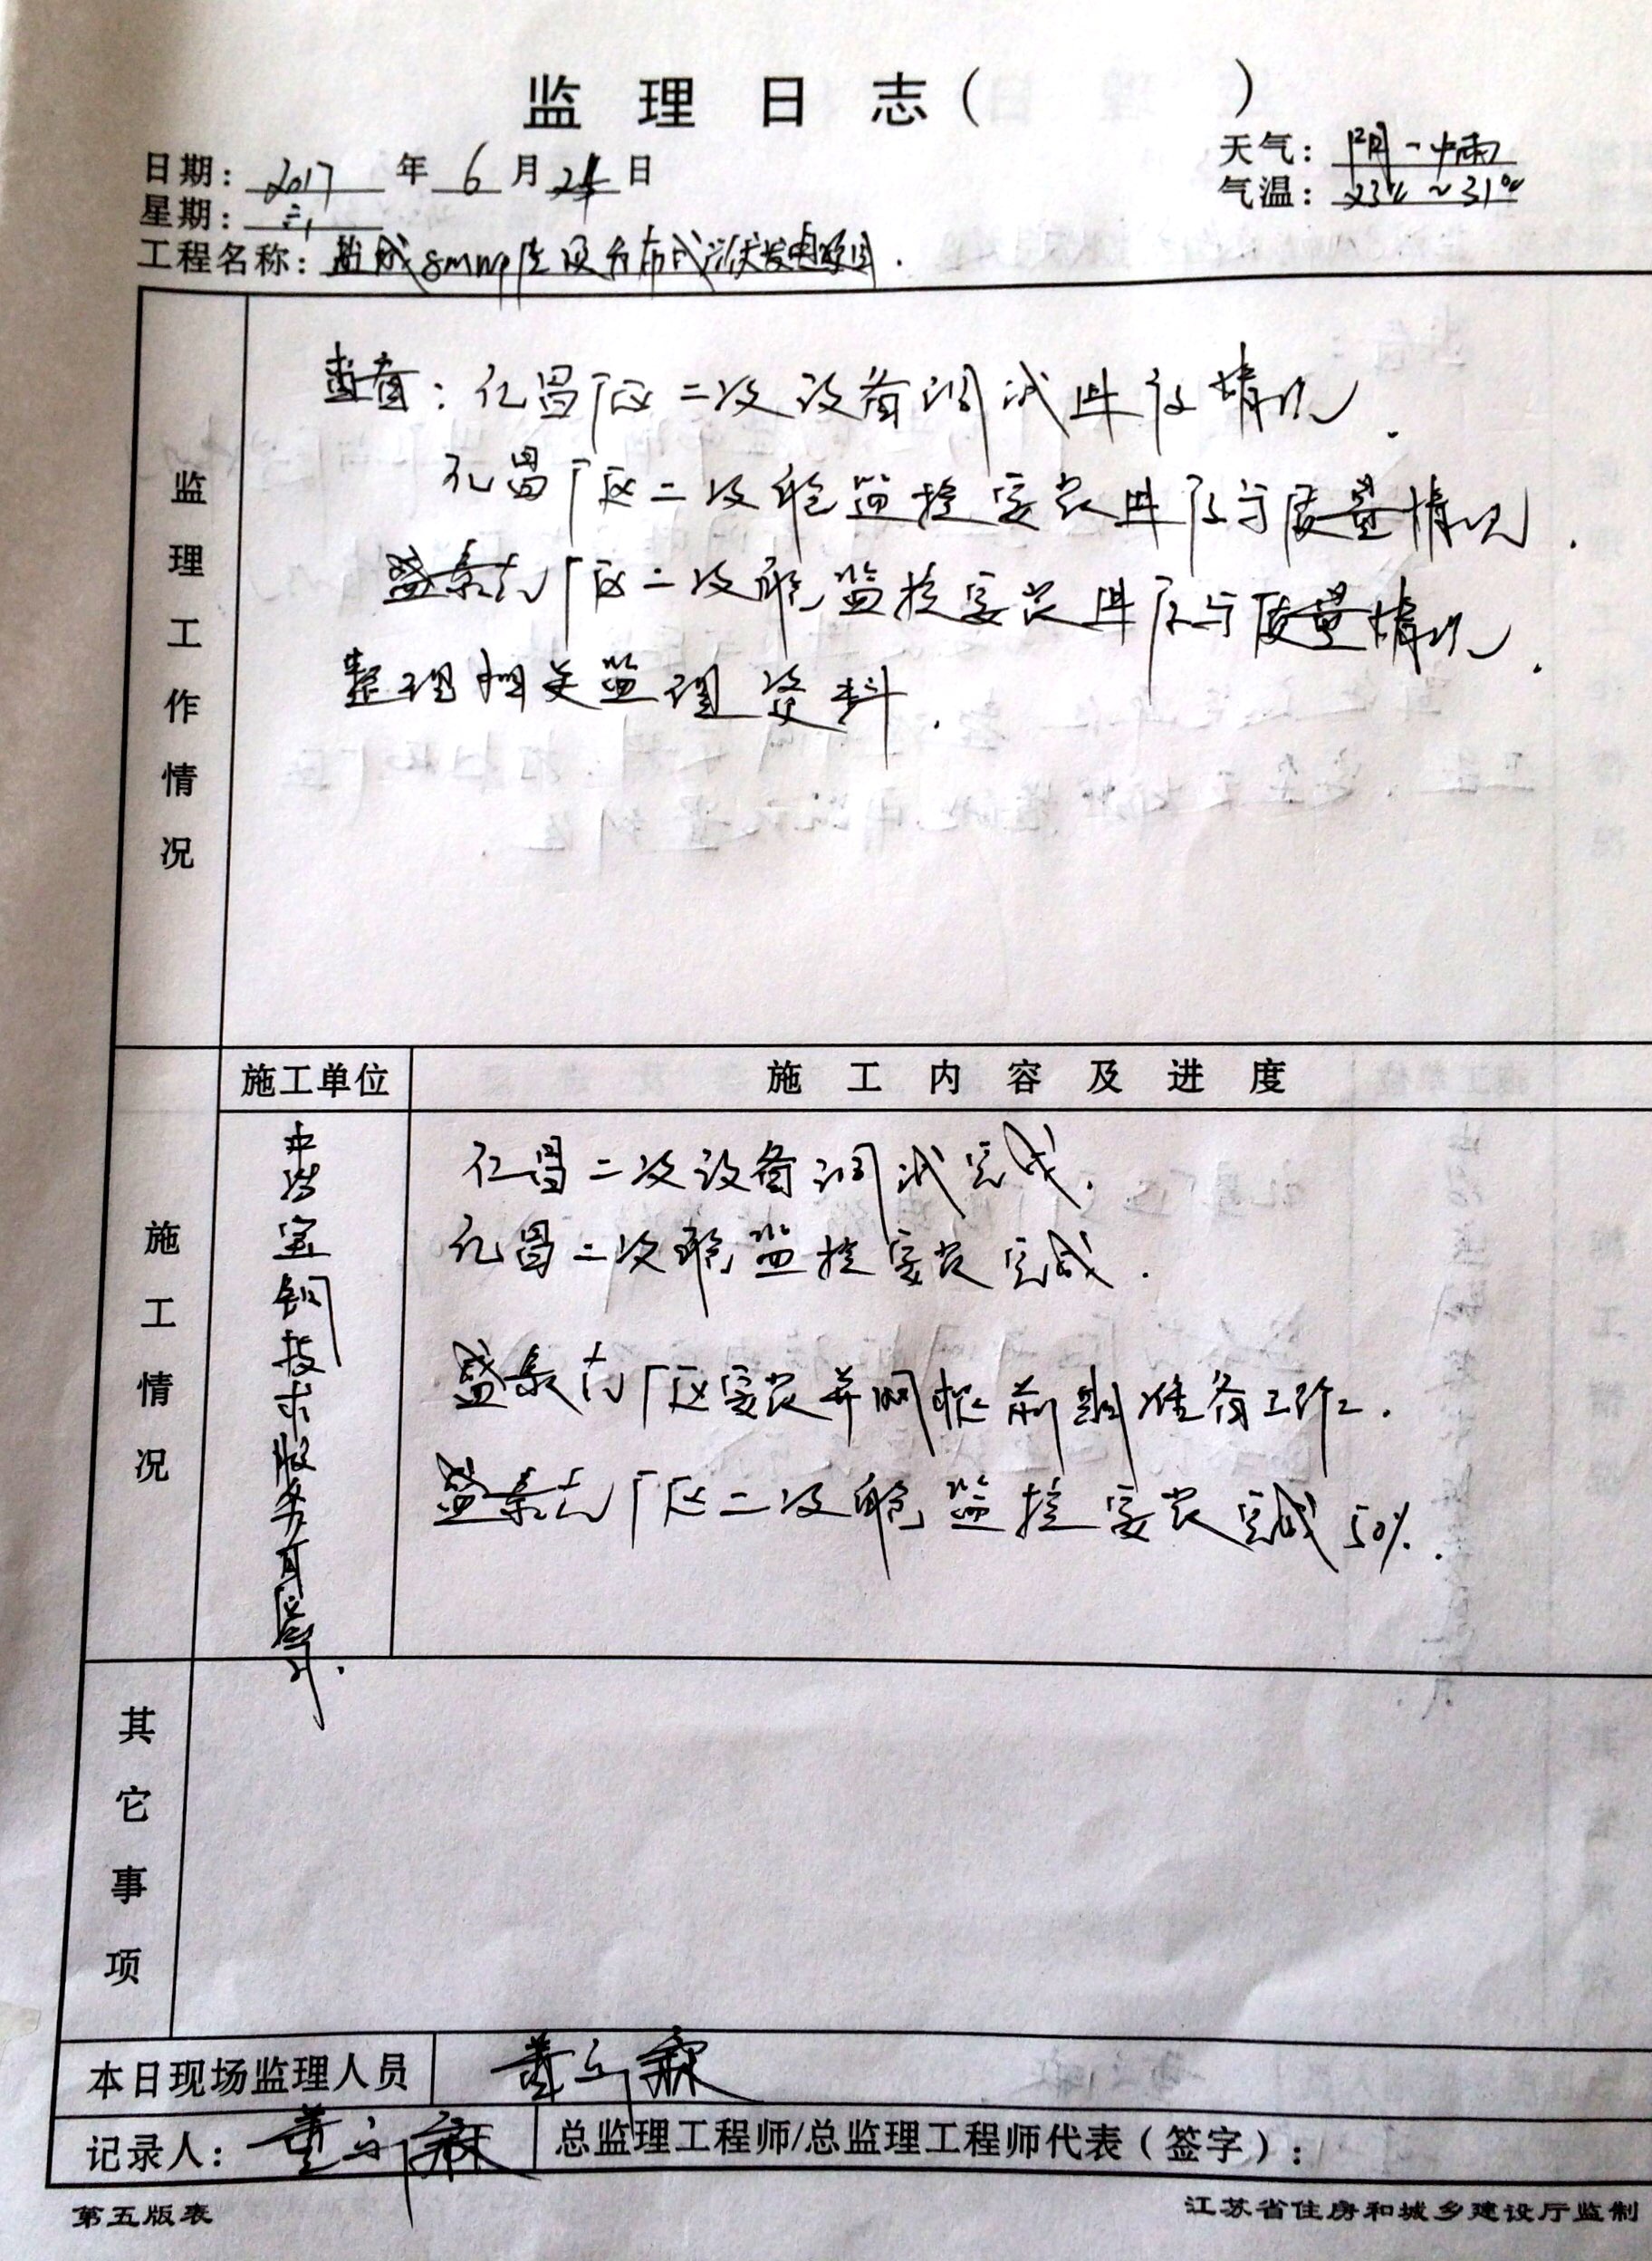 监理日志( )
日期: 2017 年 6 月 21 日
天气: 阴-中雨
星期: 三
气温: 23℃~31℃
工程名称: 盐城8MWp屋顶分布式光伏发电项目.
监理工作情况
查看: 仁昌厂区二次设备调试进度情况.
仁昌厂区二次舱监控安装进度与质量情况.
盛泰古厂区二次舱监控安装进度与质量情况.
整理相关监理资料.
施工单位
施工内容及进度
施工情况
中冶宝钢技术服务有限公司.
仁昌二次设备调试完成.
仁昌二次舱监控安装完成.
厂区安装并网柜前期准备工作.
厂区二次舱监控安装完成50%.
其它事项
本日现场监理人员
记录人:
总监理工程师/总监理工程师代表(签字):
第五版表
江苏省住房和城乡建设厅监制